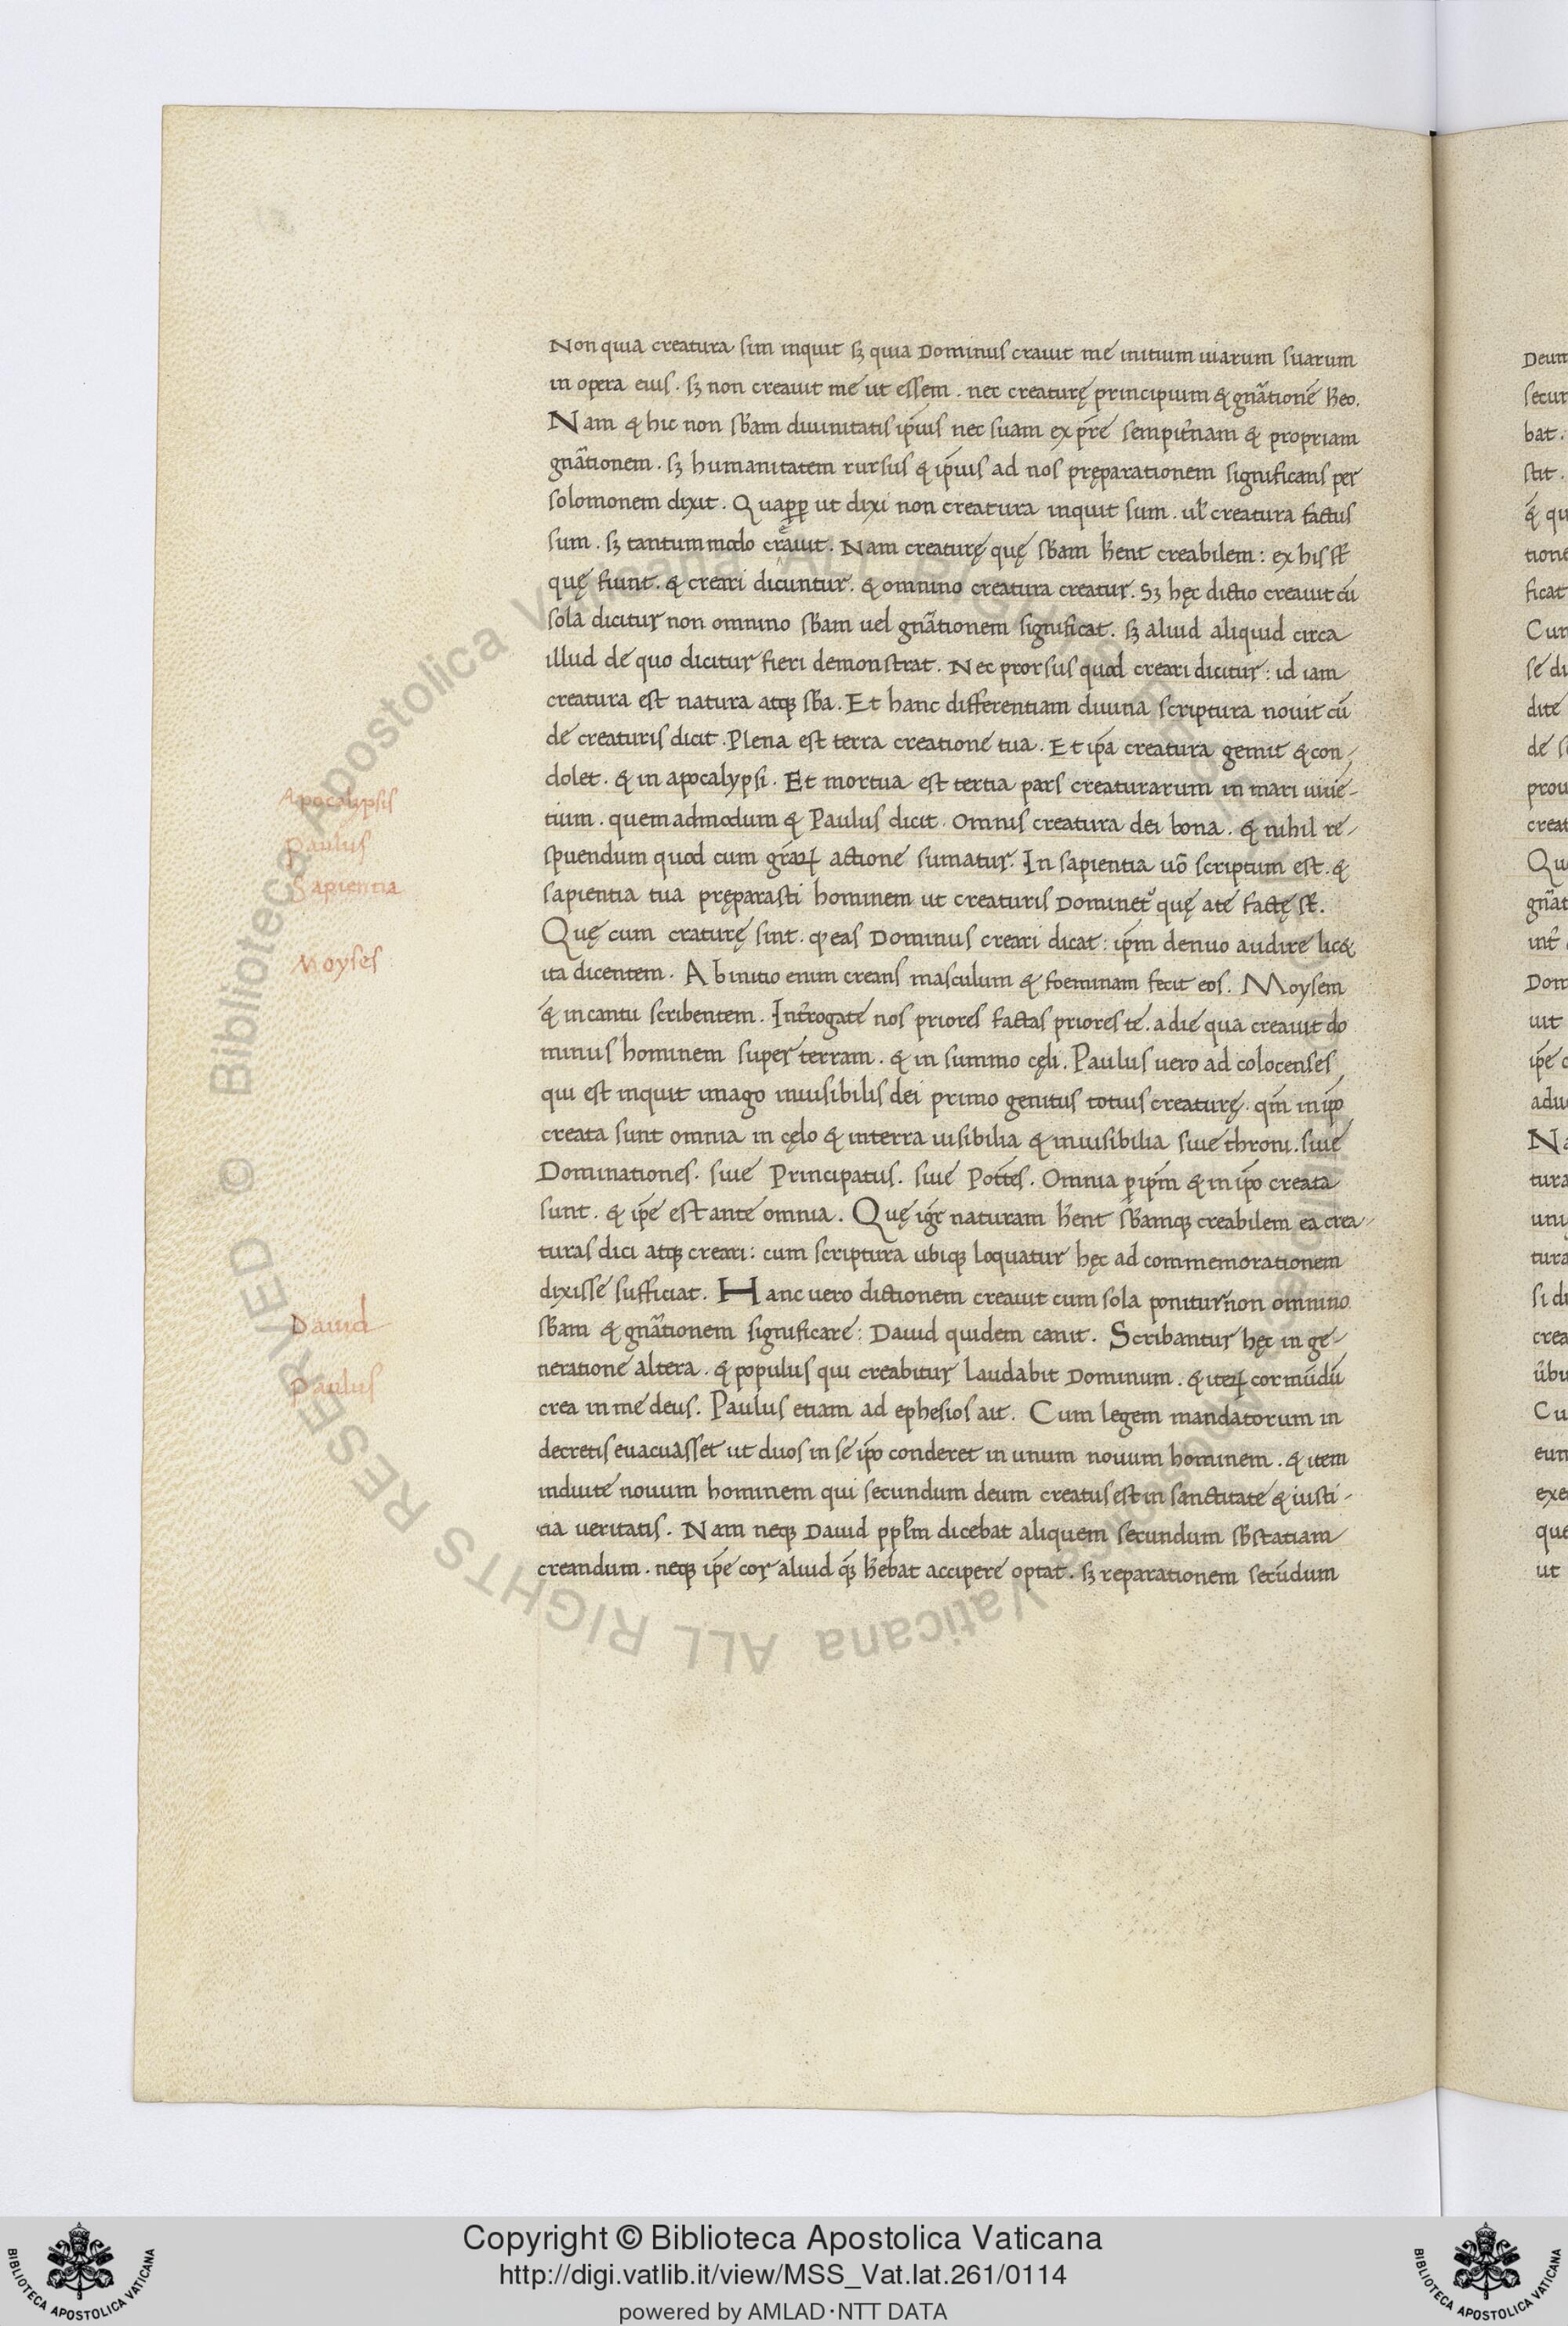 Non quia creatura sim inquit sꝫ quia Dominus crauit me initium uiarum suarum
in opera eius. sꝫ non creauit me ut essem. nec creaturę principium & gnãtionẽ ħeo.
Nam & hic non sƀam diuinitatis ip̃ius nec suam ex pr̃e sempit̃nam & propriam
gnãtionem. sꝫ humanitatem rursus & ip̃ius ad nos pręparationem significans per
solomonem dixit. Quaꝓꝑ ut dixi non creatura inquit sum. ul̃ creatura factus
sum. sꝫ tantummodo creauit. Nam creaturę quę sƀam ħent creabilem: ex his st̃
quę fiunt. & creari dicuntur. & omnino creatura creatur. Sꝫ hęc dictio creauit cũ
sola dicitur non omnino sƀam uel gnãtionem significat. sꝫ aliud aliquid circa
illud de quo dicitur fieri demonstrat. Nec prorsus quod creari dicitur: id iam
creatura est natura atqꝫ sƀa. Et hanc differentiam diuina scriptura nouit cũ
de creaturis dicit. Plena est terra creatione tua. Et ip̃a creatura gemit & con-
dolet. & in apocalypsi. Et mortua est tertia pars creaturarum in mari uiuẽ-
tium. quemadmodum & Paulus dicit. Omnis creatura dei bona. & nihil re-
spuendum quod cum gr̃aꝝ actione sumatur. In sapientia uõ scriptum est. &
sapientia tua pręparasti hominem ut creaturis Dominet᷑ quę a te factę st̃.
Quę cum craturę sint. ꝙ eas Dominus creari dicat: ip̃m denuo audire lic&
ita dicentem. Ab initio enim creans masculum & foeminam fecit eos. Moysem
& in cantu scribentem. Int̃rogate nos priores factas priores te. a die qua creauit do
minus hominem super terram. & in summo cęli. Paulus uero ad colocenses
qui est inquit imago inuisibilis dei primo genitus totius creaturę. qm̃ in ip̃o
creata sunt omnia in cęlo & in terra uisibilia & inuisibilia siue throni. siue
Dominationes. siue Principatus. siue Pott̃es. Omnia ꝑ ip̃m & in ip̃o creata
sunt. & ip̃e est ante omnia. Quę igr̃ naturam ħent sƀamqꝫ creabilem ea crea-
turas dici atqꝫ creari: cum scriptura ubiqꝫ loquatur hęc ad commemorationem
dixisse sufficiat. Hanc uero dictionem creauit cum sola ponitur non omnino
sƀam & gnãtionem significare: Dauid quidem canit. Scribantur hęc in ge-
neratione altera. & populus qui creabitur laudabit Dominum. & iteꝝ cor mũdũ
crea in me deus. Paulus etiam ad ephesios ait. Cum legem mandatorum in
decretis euacuasset ut duos in se ip̃o conderet in unum nouum hominem. & item
induite nouum hominem qui secundum deum creatus est in sanctitate & iusti-
cia ueritatis. Nam neqꝫ Dauid ppl̃m dicebat aliquem secundum sƀstatiam
creandum. neqꝫ ip̃e cor aliud q̃ꝫ ħebat accipere optat. sꝫ reparationem secũdum
Apocalypsis
Paulus
Sapientia
Moyses
Dauid
Paulus
Deum
secun
bat.
stit.
& qu
tione
ficat
Cun
se di
dite
de s
prou
creat
Qu
gnãt
int̃
Dom
uit
ip̃e c
adu
Na
tura
uni
tura
si di
crea
Cu
eun
exe
que
ut
© Biblioteca Apostolica Vaticana ALL RIGHTS RESERVED
Copyright © Biblioteca Apostolica Vaticana
http://digi.vatlib.it/view/MSS_Vat.lat.261/0114
powered by AMLAD·NTT DATA
BIBLIOTECA APOSTOLICA VATICANA
BIBLIOTECA APOSTOLICA VATICANA